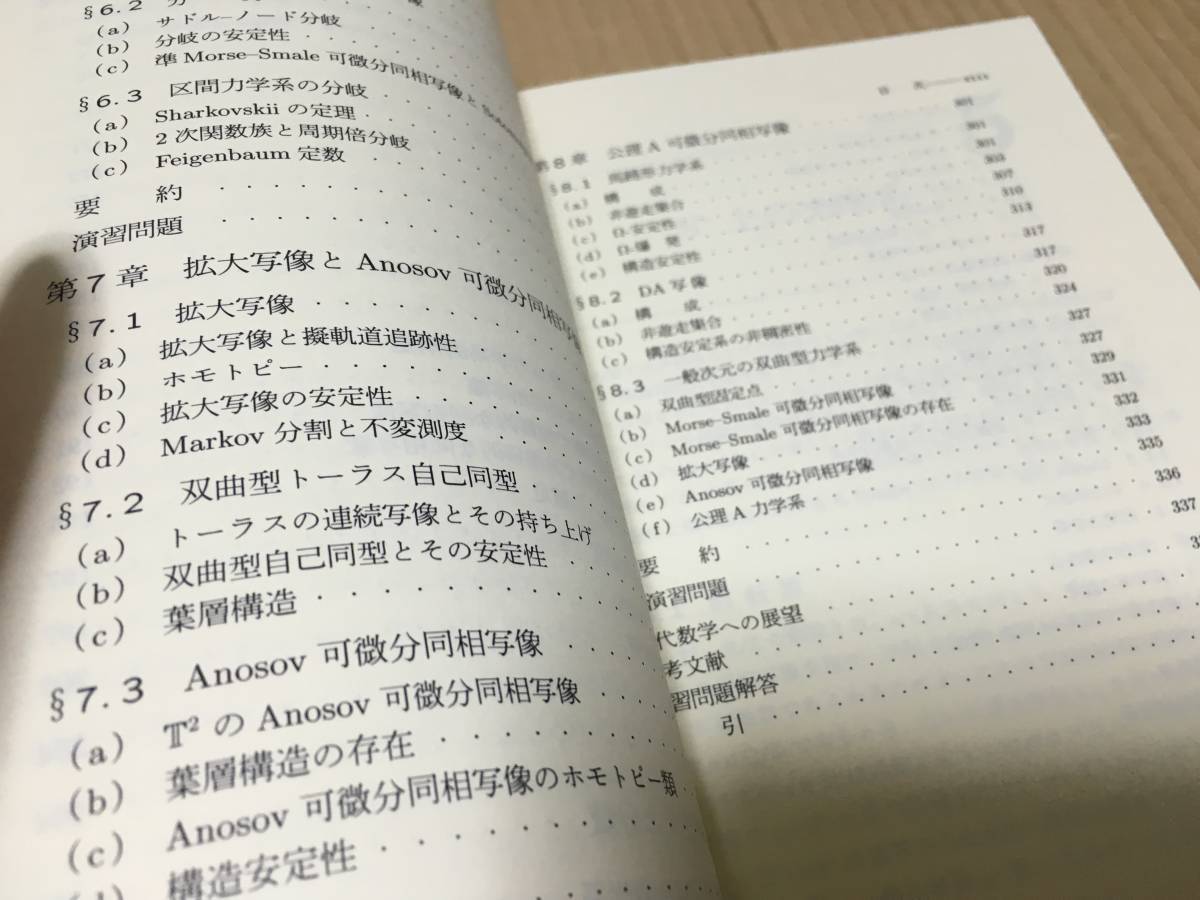 §6.2 分
(a) サドル–ノード分岐
(b) 分岐の安定性
(c) 準Morse–Smale 可微分同相写像と
§6.3 区間力学系の分岐
(a) Sharkovskii の定理
(b) 2次関数族と周期倍分岐
(c) Feigenbaum 定数
要 約
演習問題
第7章 拡大写像と Anosov 可微分同相写像
§7.1 拡大写像
(a) 拡大写像と擬軌道追跡性
(b) ホモトピー
(c) 拡大写像の安定性
(d) Markov 分割と不変測度
§7.2 双曲型トーラス自己同型
(a) トーラスの連続写像とその持ち上げ
(b) 双曲型自己同型とその安定性
(c) 葉層構造
§7.3 Anosov 可微分同相写像
(a) 𝕋² の Anosov 可微分同相写像
(b) 葉層構造の存在
(c) Anosov 可微分同相写像のホモトピー類
(d) 構造安定性
目 次
第8章 公理A 可微分同相写像 301
§8.1 馬蹄形力学系 301
(a) 構 成 301
(b) 非遊走集合 303
(c) Ω-安定性 307
(d) Ω-爆発 310
(e) 構造安定性 313
§8.2 DA写像 317
(a) 構 成 317
(b) 非遊走集合 320
(c) 構造安定系の非稠密性 324
§8.3 一般次元の双曲型力学系 327
(a) 双曲型固定点 327
(b) Morse–Smale 可微分同相写像 329
(c) Morse–Smale 可微分同相写像の存在 331
(d) 拡大写像 332
(e) Anosov 可微分同相写像 333
(f) 公理A力学系 335
要 約 336
演習問題 337
代数学への展望
考文献
習問題解答
引